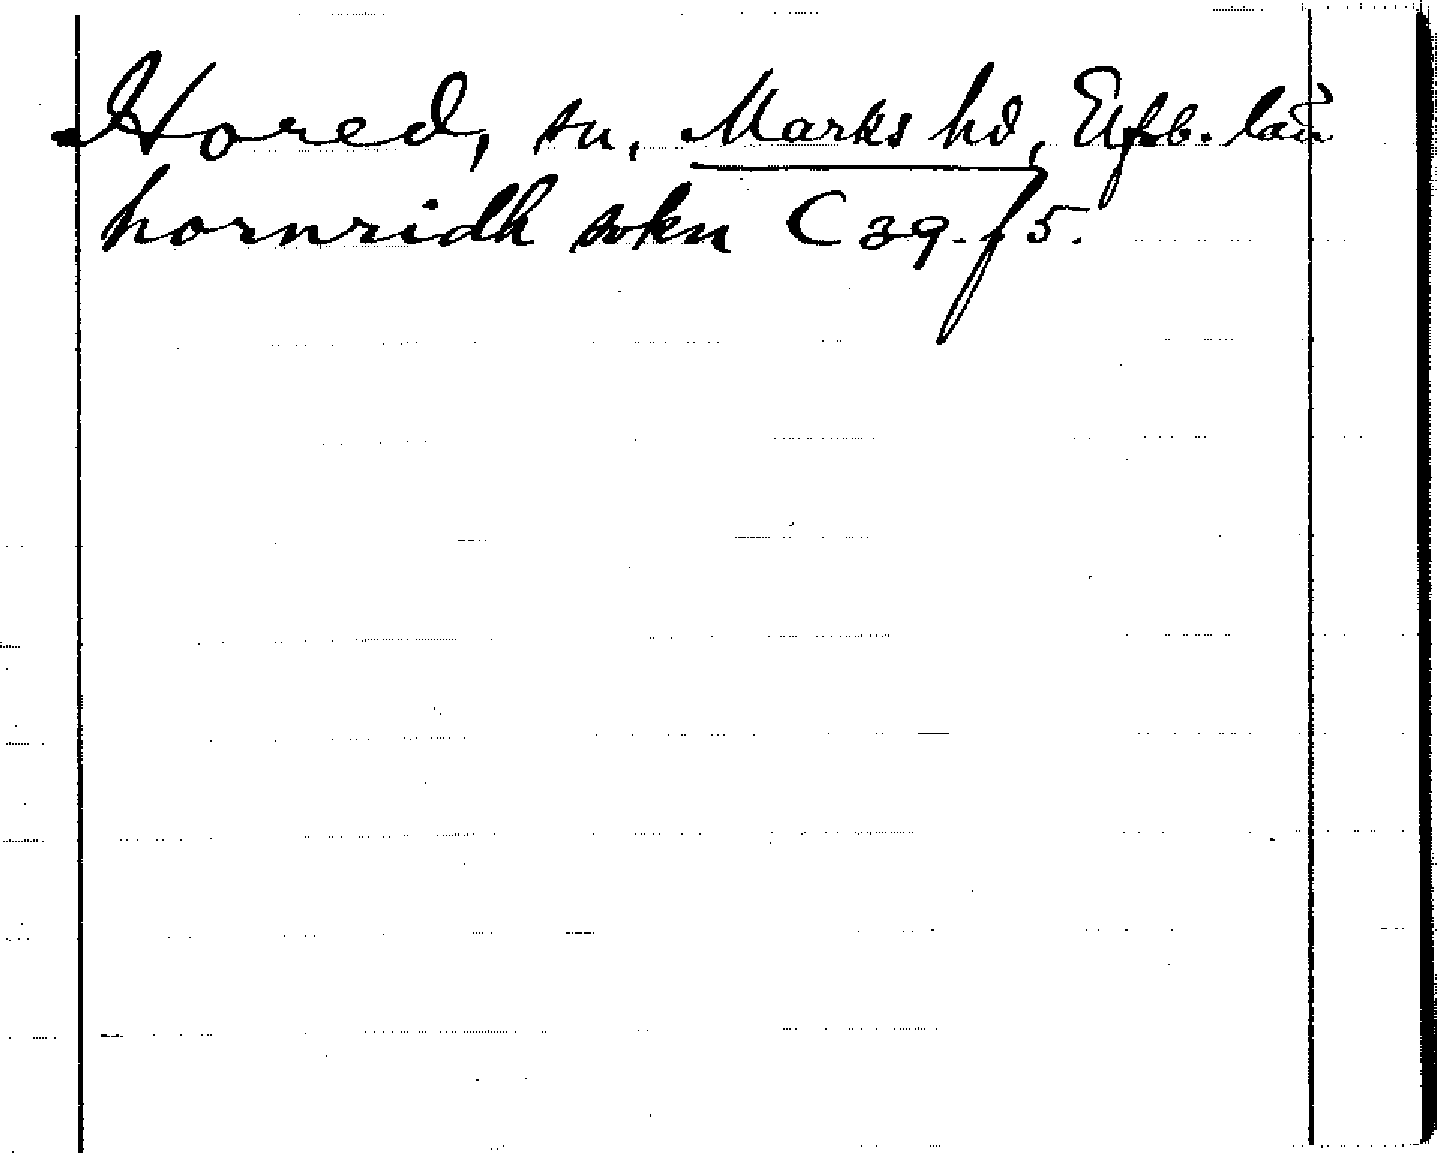 Hored, sn, Marks hd, Elfsb. län
hornridh sokn C 39. f 5.